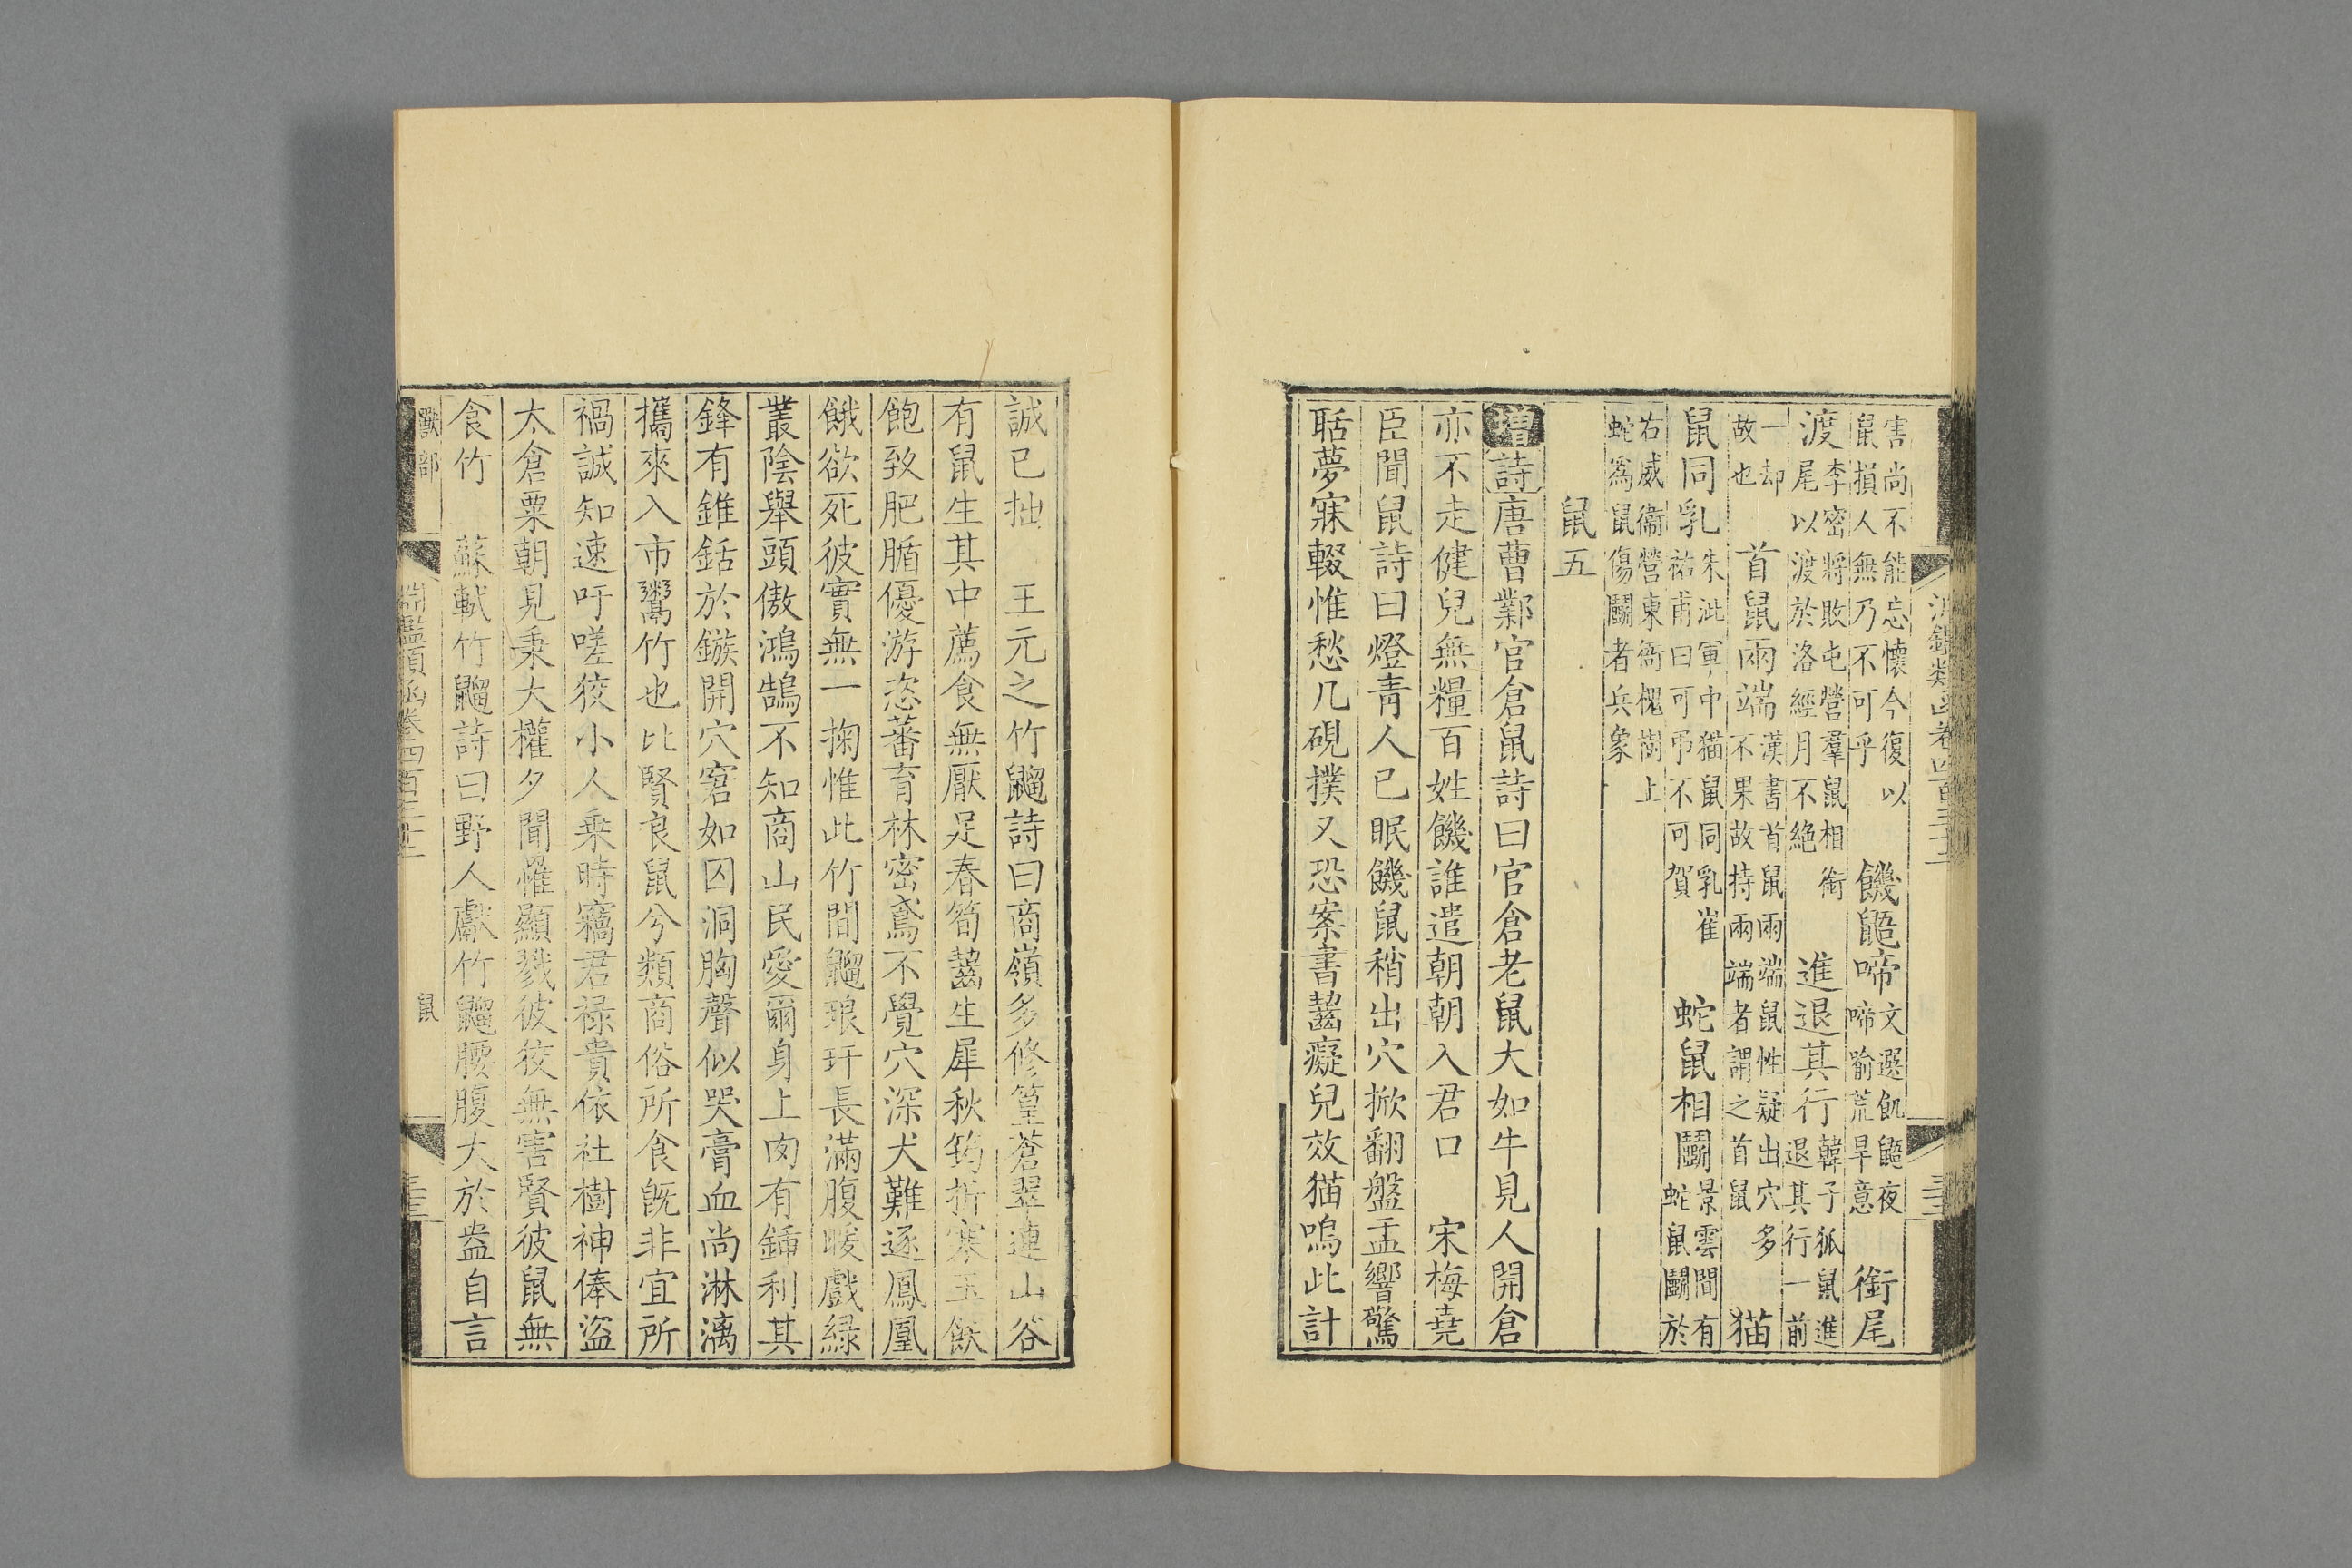 害尚不能忘懷今復以鼠損人無乃不可乎 饑鼯啼文選飢鼯夜啼喻荒旱意 銜尾
渡李密將敗屯營羣鼠相銜尾以渡於洛經月不絶 進退其行韓子狐鼠進退其行一前
一却故也 首鼠兩端漢書首鼠兩端鼠性疑出穴多不果故持兩端者謂之首鼠 猫
鼠同乳朱泚軍中猫鼠同乳崔祐甫曰可弔不可賀 蛇鼠相鬬景雲間有蛇鼠鬬於
右威衞營東衙槐樹上蛇爲鼠傷鬬者兵象
鼠五
增詩唐曹鄴官倉鼠詩曰官倉老鼠大如牛見人開倉
亦不走健兒無糧百姓饑誰遣朝朝入君口 宋梅堯
臣聞鼠詩曰燈青人已眠饑鼠稍出穴掀翻盤盂響驚
聒夢寐輟惟愁几硯撲又恐案書齧癡兒效猫鳴此計
誠已拙 王元之竹䶉詩曰商嶺多修篁蒼翠連山谷
有鼠生其中薦食無厭足春筍齧生犀秋筠折寒玉飫
飽致肥腯優游恣蕃育林密鳶不覺穴深犬難逐鳳凰
餓欲死彼實無一掬惟此竹間䶉琅玕長滿腹暖戲緑
叢陰舉頭傲鴻鵠不知商山民愛爾身上肉有鍤利其
鋒有錐銛於鏃開穴窘如囚洞胸聲似哭膏血尚淋漓
攜來入市鬻竹也比賢良鼠兮類商俗所食旣非宜所
禍誠知速吁嗟狡小人乘時竊君祿貴依社樹神俸盜
太倉粟朝見秉大權夕聞罹顯戮彼狡無害賢彼鼠無
食竹 蘇軾竹䶉詩曰野人獻竹䶉腰腹大於盎自言
獸部
淵鑑類函卷四百三十二
鼠